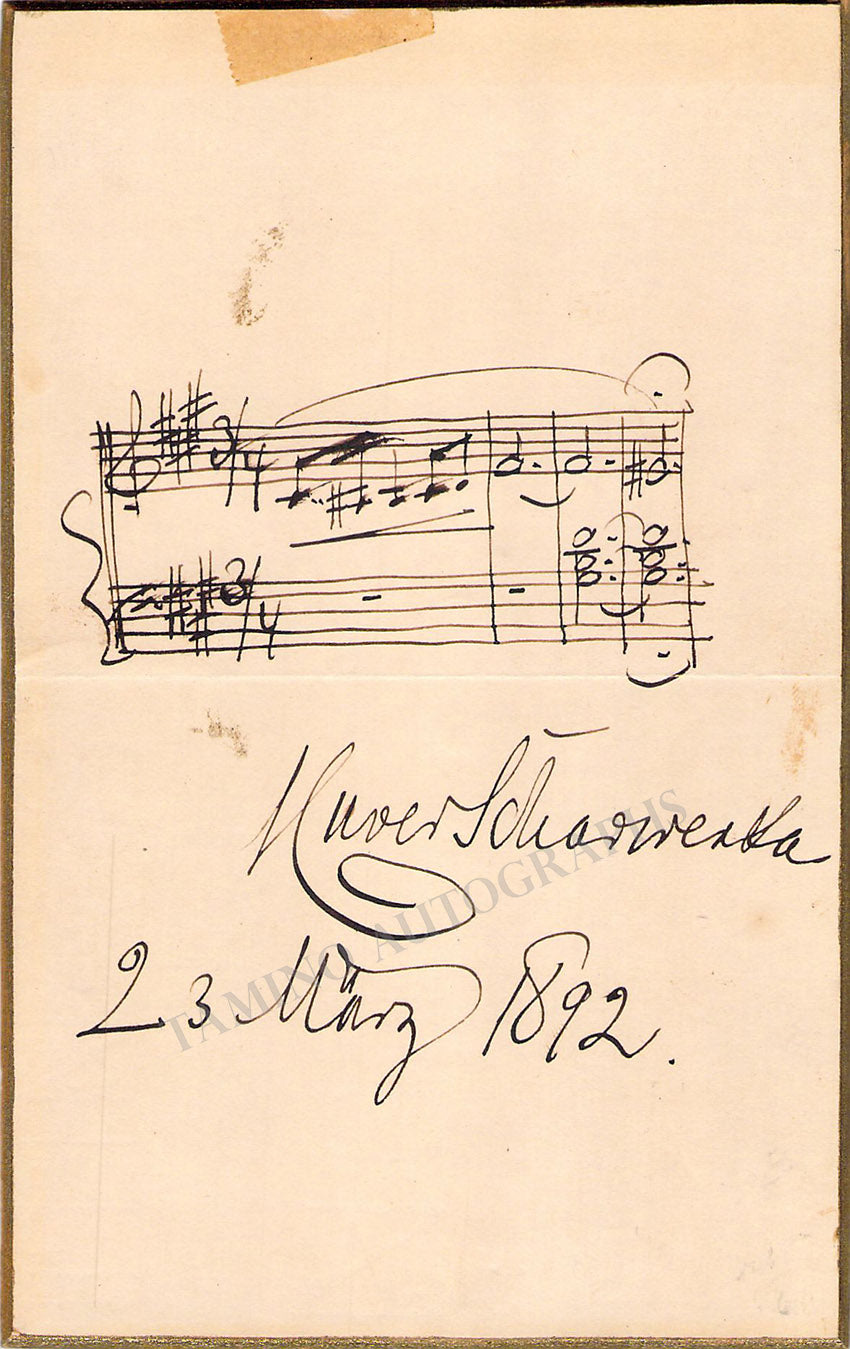 3/4
3/4
Xaver Scharwenka
TAMINO AUTOGRAPHS
23 März 1892.